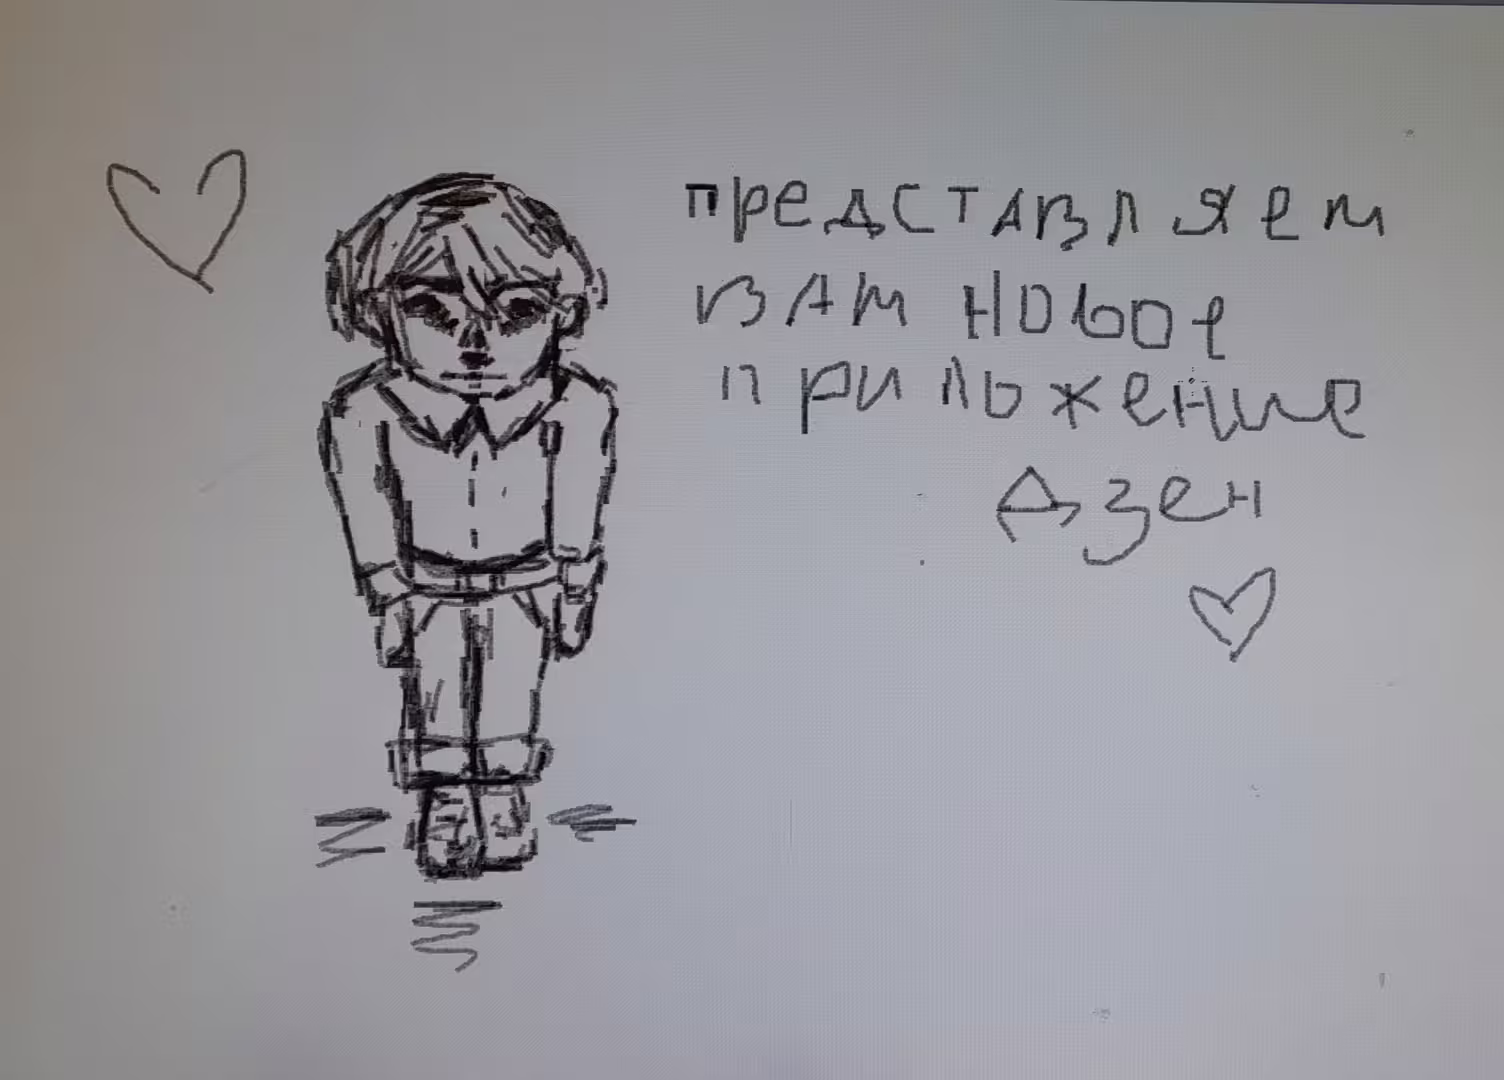 ПРЕДСТАВЛЯЕМ
ВАМ НОВОЕ
ПРИЛЬЖЕНИЕ
ДЗЕН